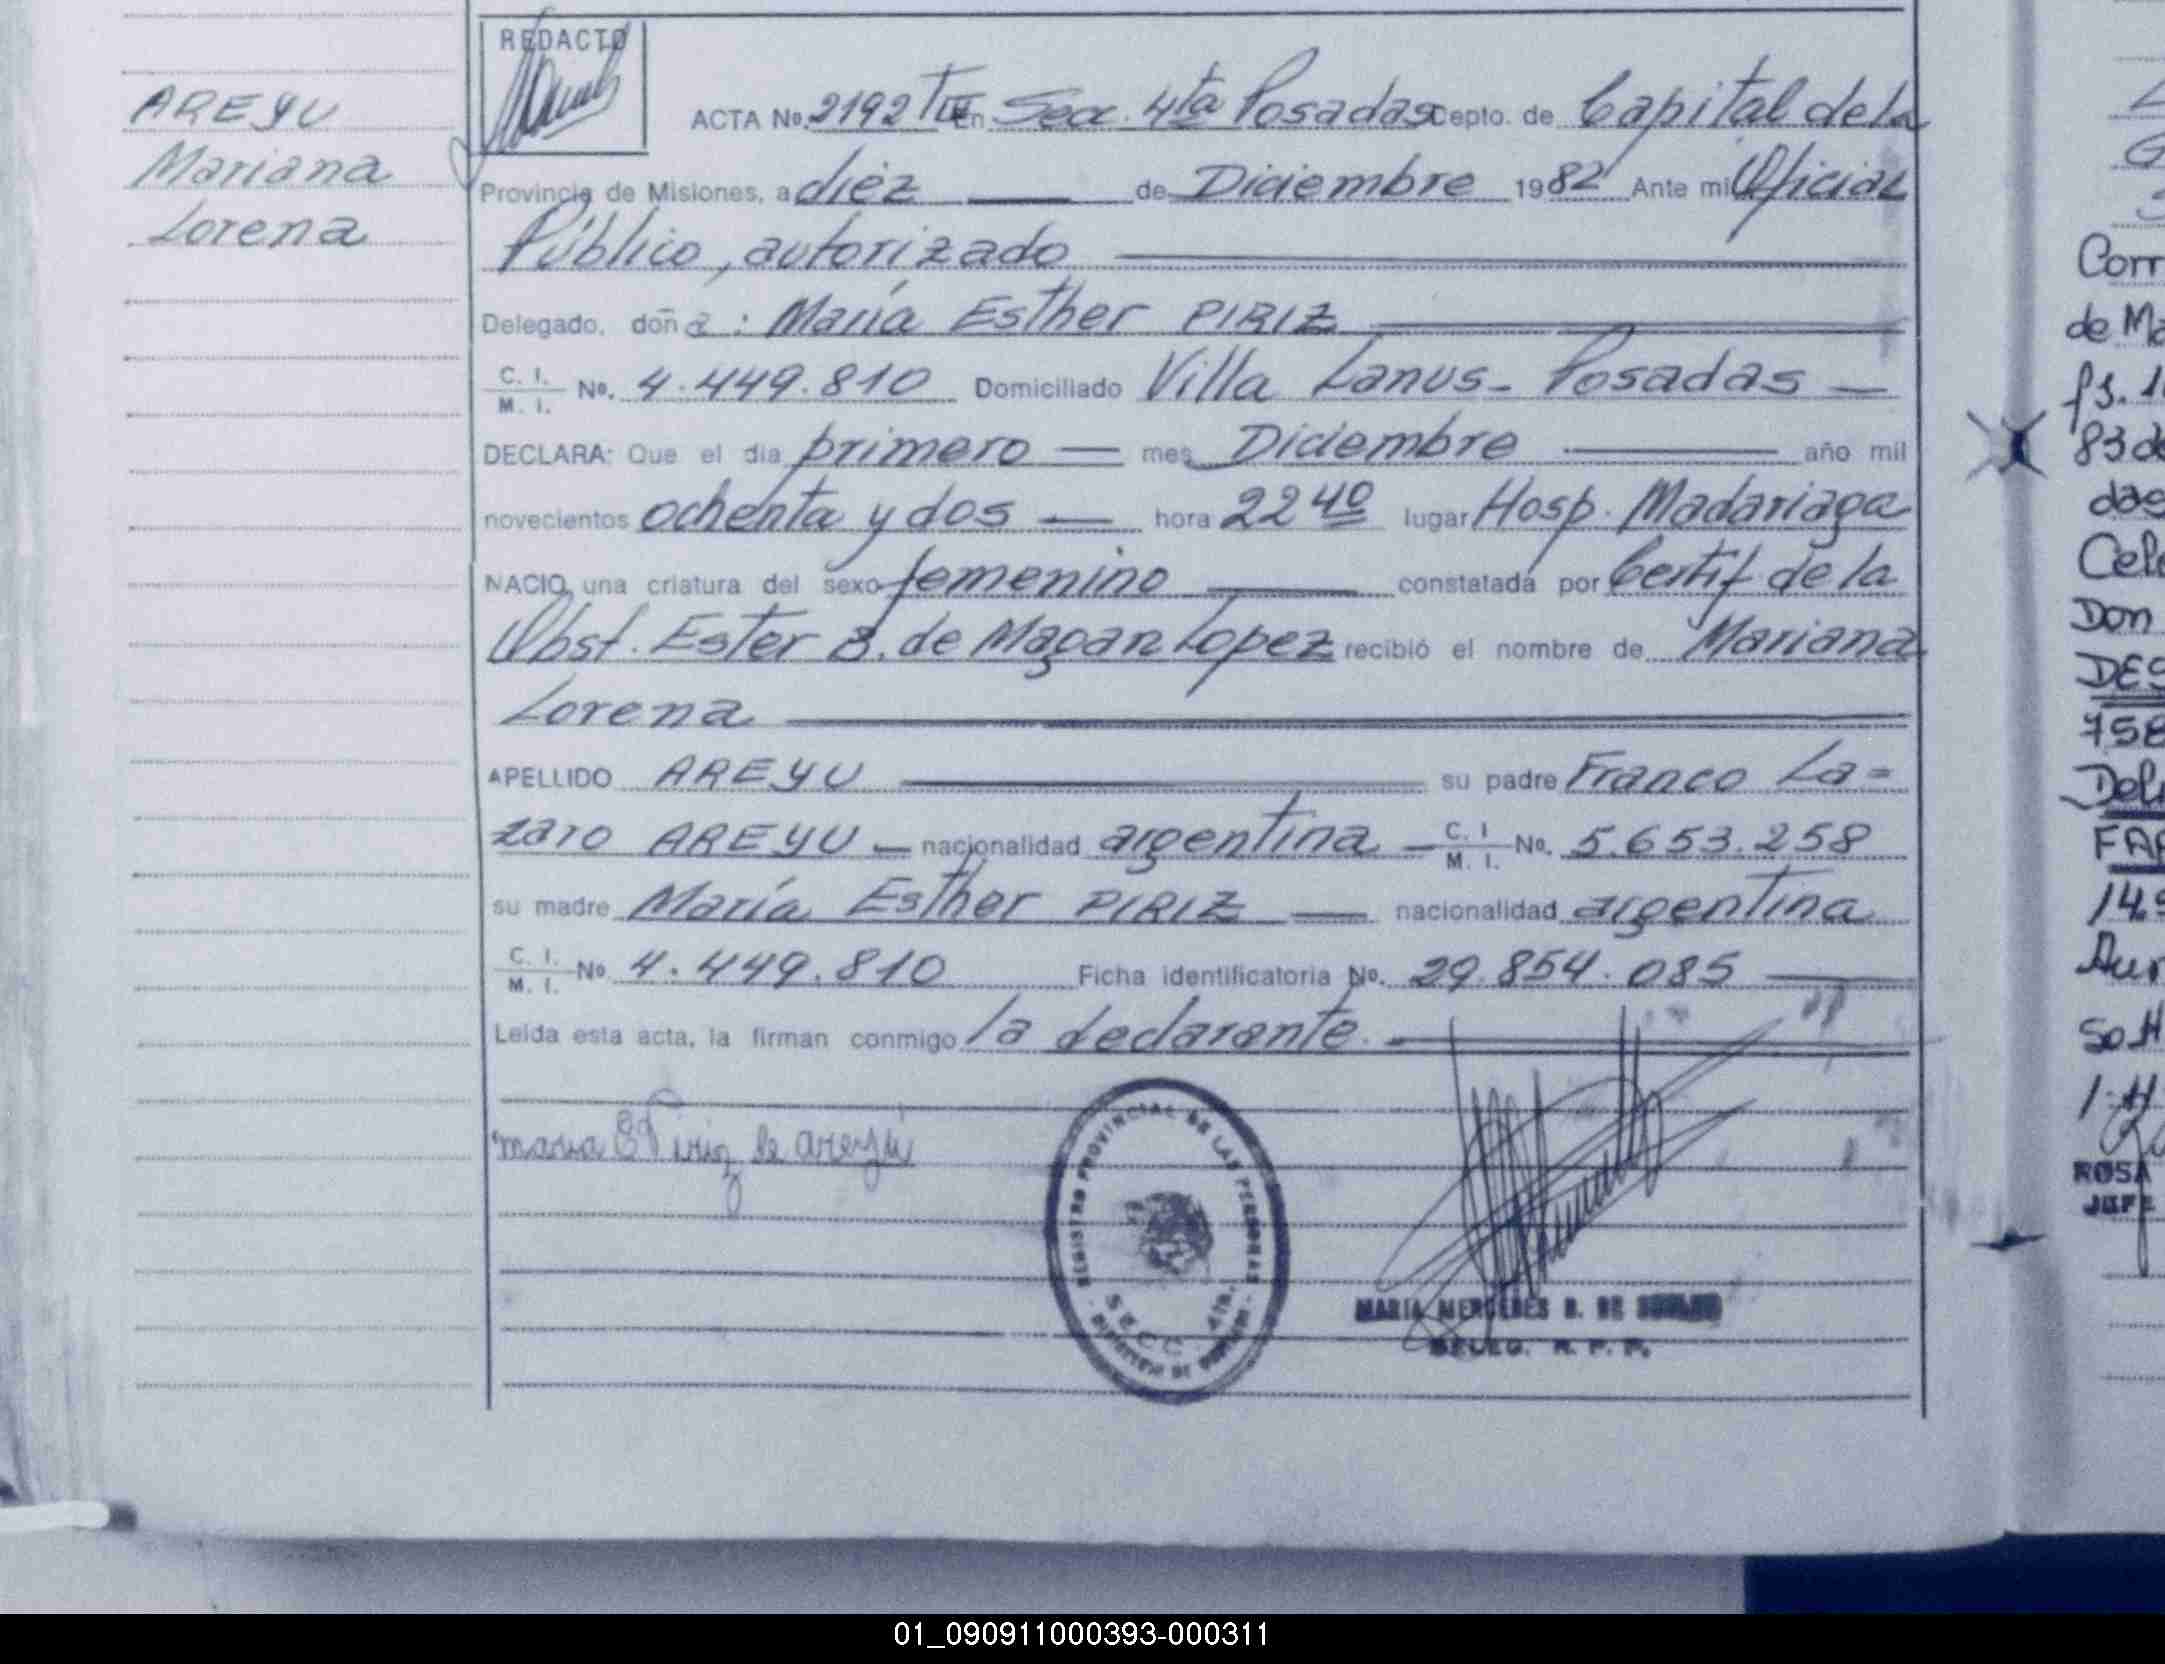 AREYU
Mariana
Lorena
REDACTO
ACTA No. 2192 TIII En Secc. 4ta Posadas Depto. de Capital de la
Provincia de Misiones, a diez de Diciembre 1982 Ante mi Oficial
Público, autorizado
Delegado, doña: María Esther PIRIZ
C. I. M. I. No. 4.449.810 Domiciliado Villa Lanus - Posadas
DECLARA: Que el dia primero mes Diciembre año mil
novecientos ochenta y dos hora 22 40 lugar Hosp. Madariaga
NACIO una criatura del sexo femenino constatada por Certif. de la
Obst. Ester B. de Magan Lopez recibió el nombre de Mariana
Lorena
APELLIDO AREYU su padre Franco La=
zaro AREYU nacionalidad argentina C. I M. I. No. 5.653.258
su madre María Esther PIRIZ nacionalidad argentina
C. I. M. I. No. 4.449.810 Ficha identificatoria No. 29.854.085
Leída esta acta, la firman conmigo la declarante.
maria E Piriz de areyú
REGISTRO PROVINCIAL DE LAS PERSONAS
SECC. 4ta.
MARIA MERCEDES B. DE
DELEG. R. P. P.
Corr
de Ma
fs. 1
83 de
das
Cele
Don
DES
758
Del
FAR
14.9
Aur
so H
ROSA
JEFE
01_090911000393-000311